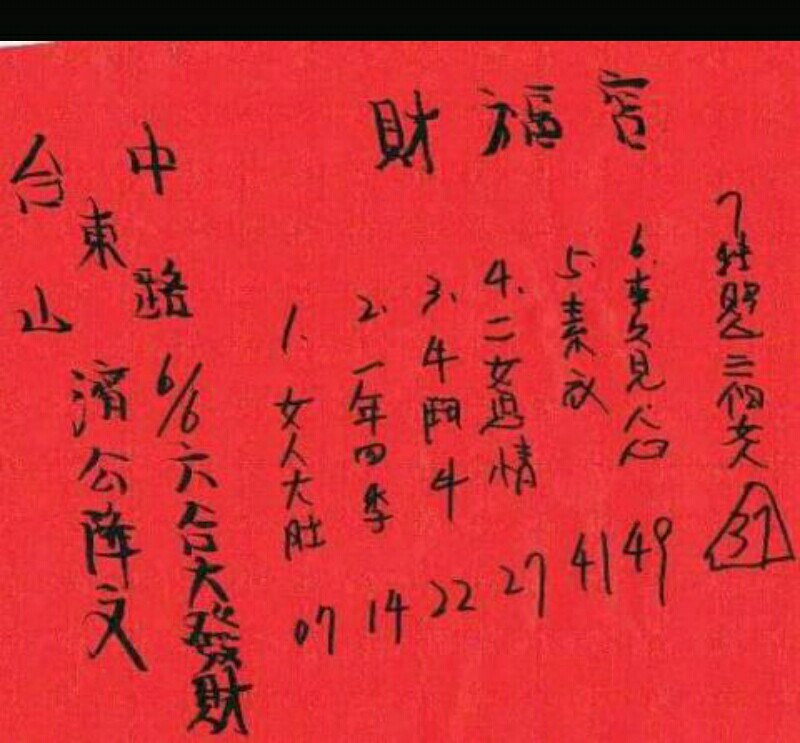 財福宮
7 特見二個女人 37
6. 事久見人心 49
5. 素衣 41
4. 二女過情 27
3. 牛鬥牛 22
2. 一年四季 14
1. 女人大肚 07
中路 6/6 六合大發財
台東山
濟公降文